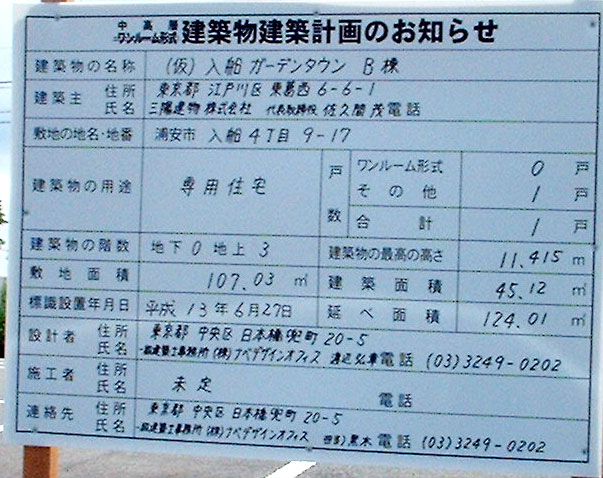 中高層
ワンルーム形式 建築物建築計画のお知らせ
建築物の名称 (仮) 入船 ガーデンタウン B棟
建築主 住所 東京都 江戸川区 東葛西 6-6-1
氏名 三陽建物 株式会社 代表取締役 佐久間茂 電話
敷地の地名・地番 浦安市 入船 4丁目 9-17
建築物の用途 専用住宅
戸数 ワンルーム形式 0 戸
その他 1 戸
合計 1 戸
建築物の階数 地下 0 地上 3 建築物の最高の高さ 11.415 m
敷地面積 107.03 ㎡ 建築面積 45.12 ㎡
標識設置年月日 平成 13年6月27日 延べ面積 124.01 ㎡
設計者 住所 東京都 中央区 日本橋兜町 20-5
氏名 一級建築士事務所 (株)アベデザインオフィス 電話 (03)3249-0202
施工者 住所
氏名 未定 電話
連絡先 住所 東京都 中央区 日本橋兜町 20-5
氏名 一級建築士事務所 (株)アベデザインオフィス 担当)黒木 電話 (03)3249-0202